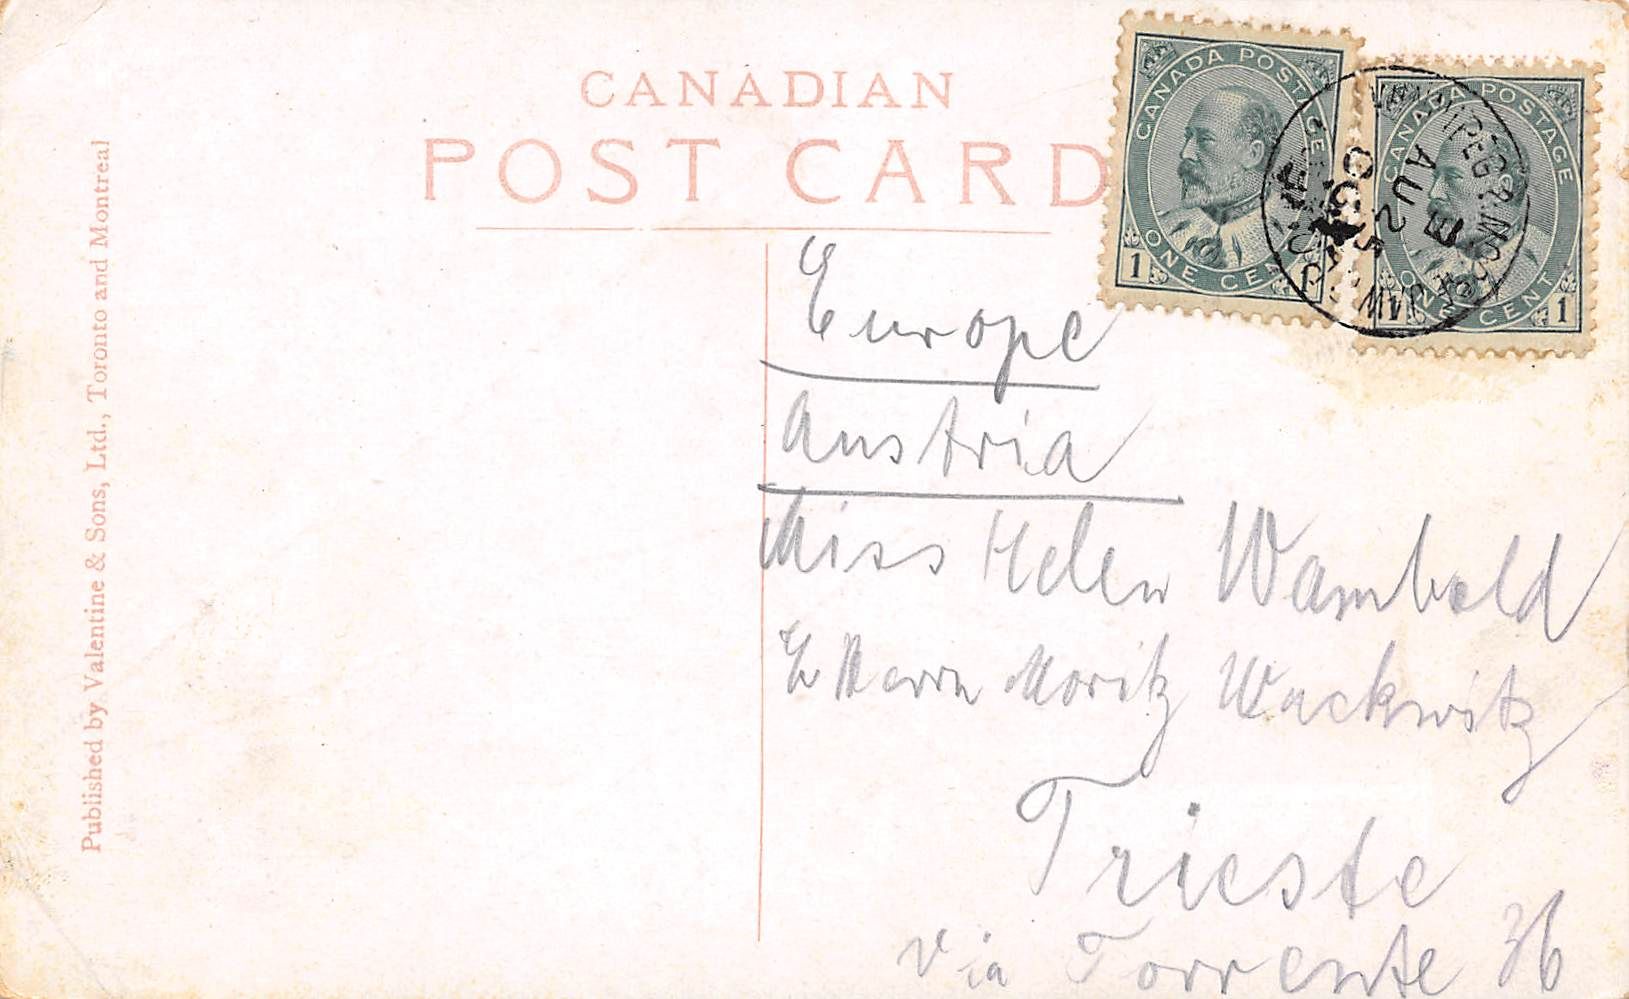 CANADIAN
POST CARD
Published by Valentine & Sons, Ltd., Toronto and Montreal
CANADA POSTAGE
1 ONE CENT 1
CANADA POSTAGE
ONE CENT 1
WINNIPEG & MOOSE JAW
E
AU 2
Europe
Austria
Miss Helen Wambold
Herrn Moritz Wackwitz
Trieste
Via Torrente 36